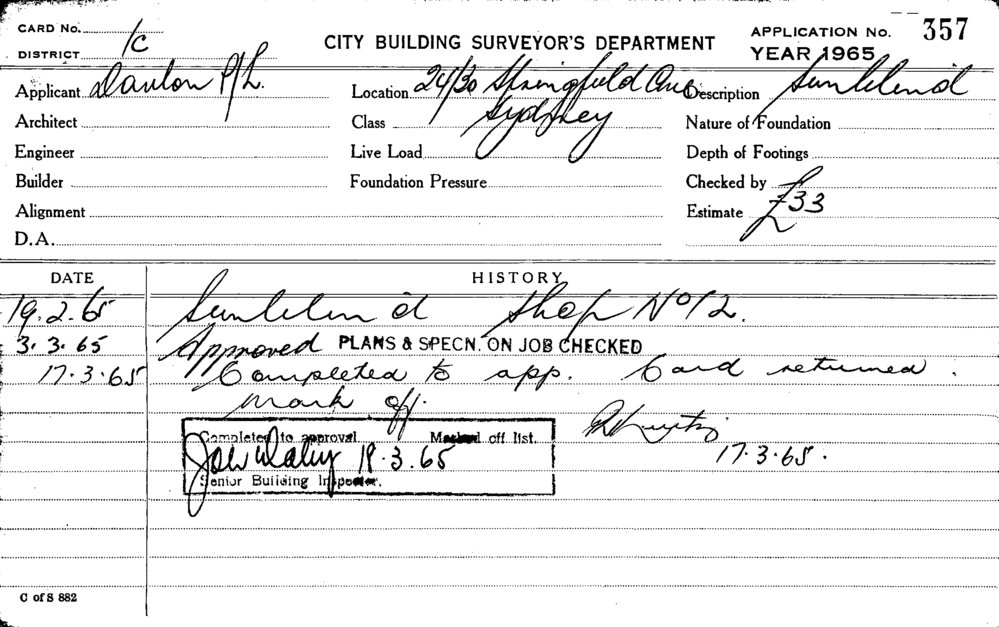 CARD No. 1c
DISTRICT
CITY BUILDING SURVEYOR'S DEPARTMENT
APPLICATION No. 357
YEAR 1965
Applicant Danlon P/L. Location 24/30 Springfield Ave Description Sunblind
Architect Class Sydney Nature of Foundation
Engineer Live Load Depth of Footings
Builder Foundation Pressure Checked by
Alignment Estimate £33
D.A.
DATE HISTORY
19.2.65 Sunblind Shop No 12.
3.3.65 Approved PLANS & SPECN. ON JOB CHECKED
17.3.65 Completed to app. Card returned.
mark off.
Completed to approval Marked off list.
18.3.65
Senior Building Inspector.
17.3.65.
C of S 882